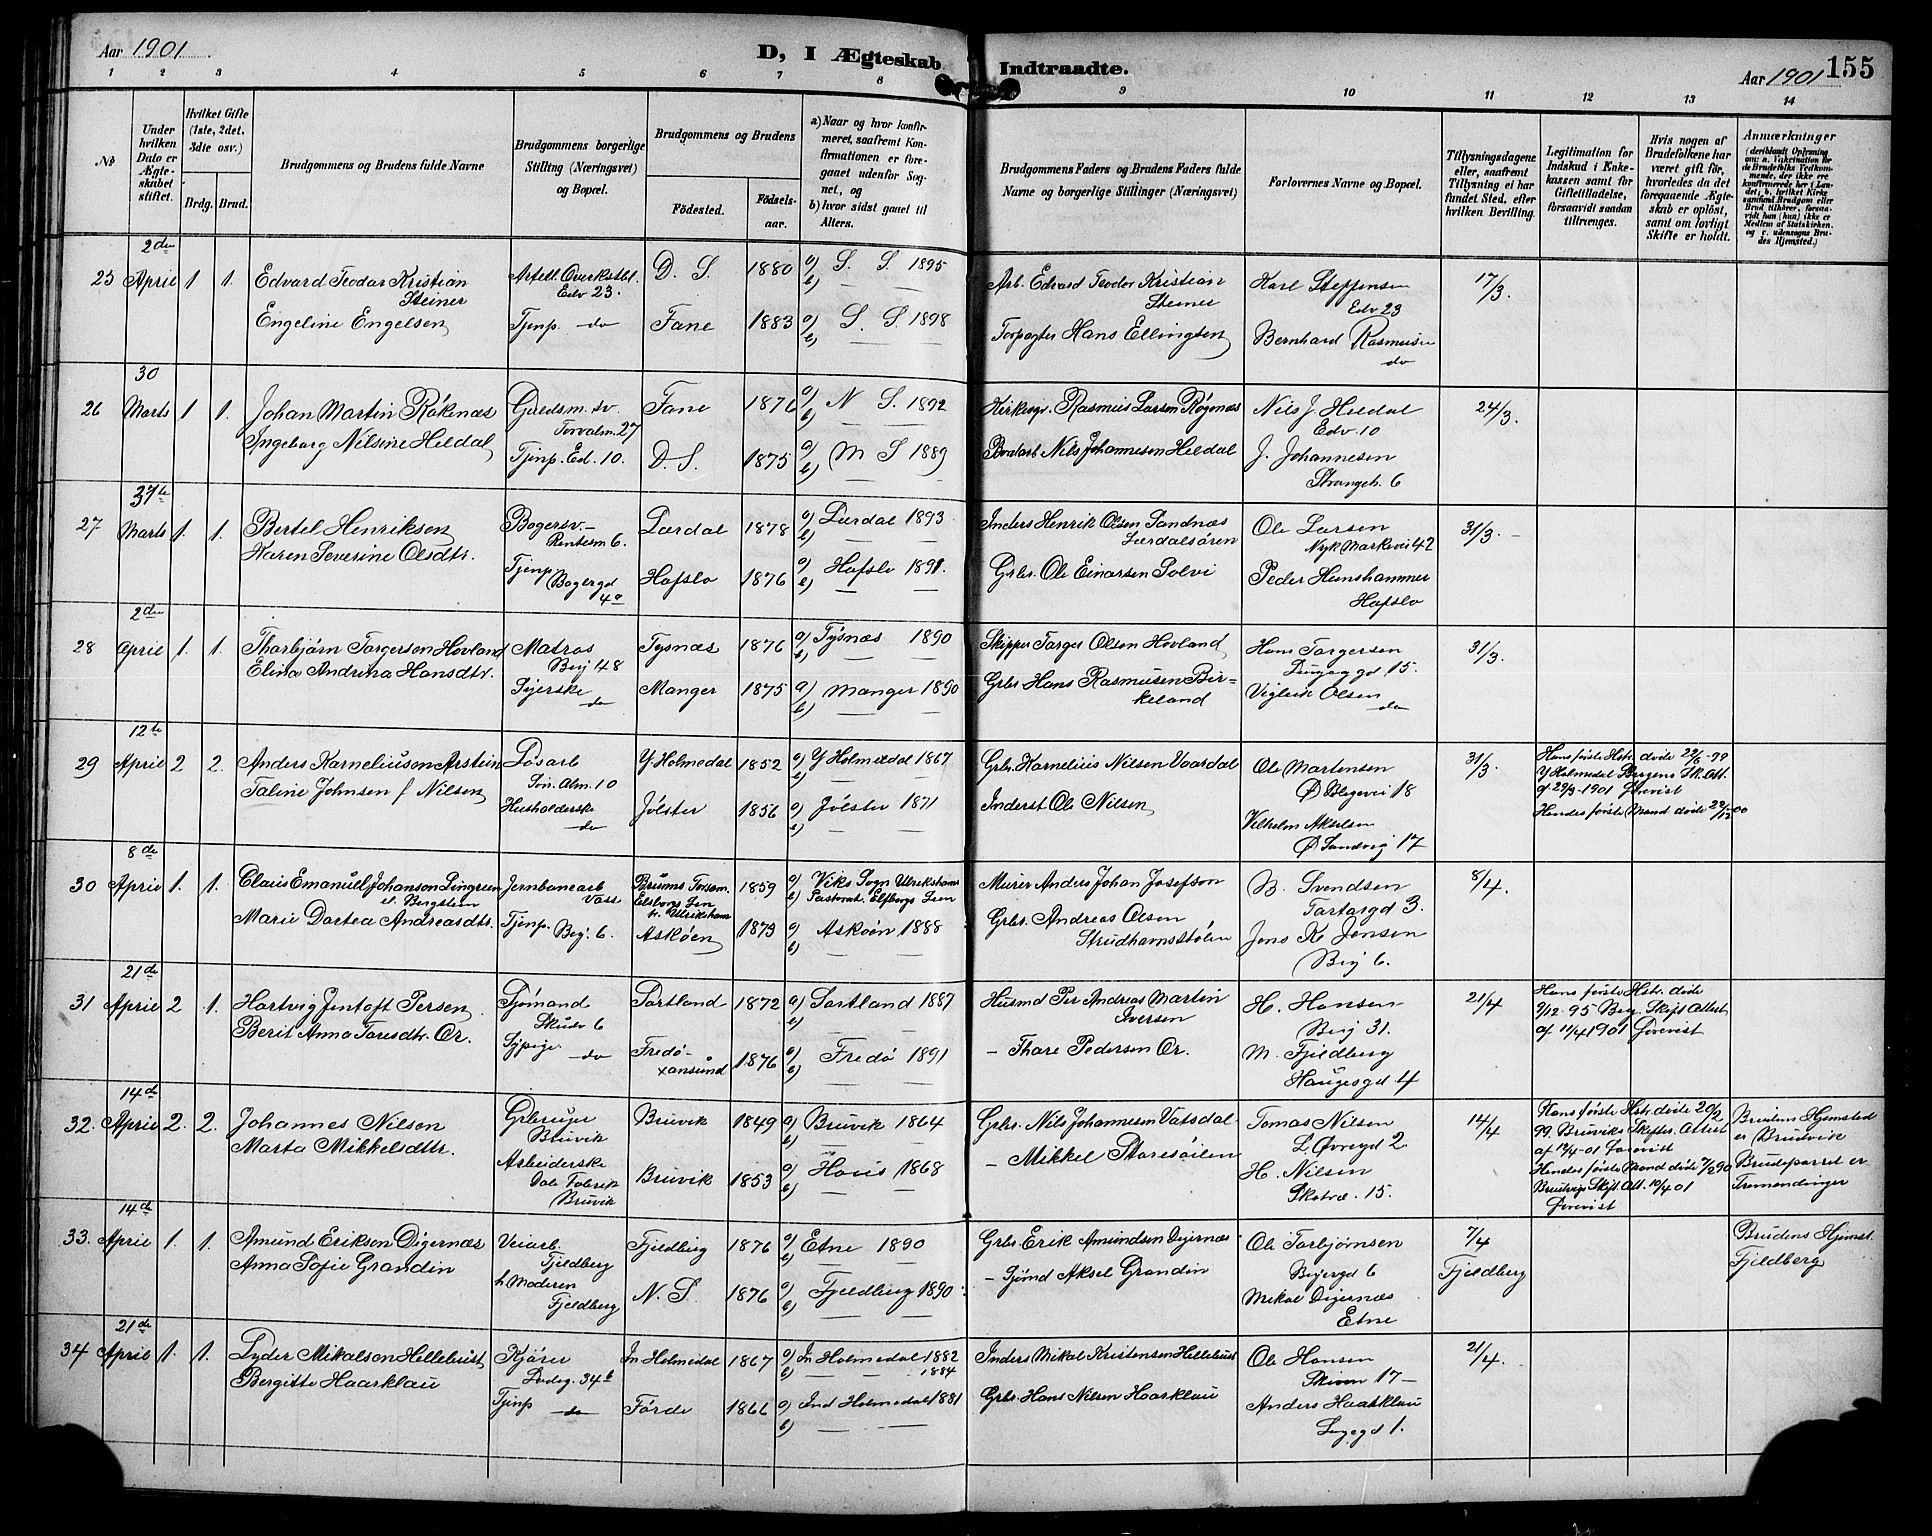 Aar 1901
D, I Ægteskab Indtraadte.
Aar 1901 155
1 2 3 4 5 6 7 8 9 10 11 12 13 14
№
Under hvilken Dato er Ægteskabet stiftet.
Hvilket Gifte (1ste, 2det, 3die osv.)
Brdg. Brud.
Brudgommens og Brudens fulde Navne
Brudgommens borgerlige Stilling (Næringsvei) og Bopæl.
Brudgommens og Brudens
Fødested. Fødselsaar.
a) Naar og hvor konfirmeret, saafremt Konfirmationen er foregaaet udenfor Sognet, og
b) hvor sidst gaaet til Alters.
Brudgommens Faders og Brudens Faders fulde Navne og borgerlige Stillinger (Næringsvei)
Forlovernes Navne og Bopæl.
Tillysningsdagene eller, saafremt Tillysning ei har fundet Sted, efter hvilken Bevilling.
Legitimation for Indskud i Enkekassen samt for Giftetilladelse, forsaavidt saadan tiltrænges.
Hvis nogen af Brudefolkene har været gift før, hvorledes da det foregaaende Ægteskab er opløst, samt om lovligt Skifte er holdt.
Anmærkninger
25 2den April 1 1. Edvard Teodor Kristian Steiner
Edv 23. D. S. 1880 a) S. S. 1895 b) —
Arb. Edvard Teodor Kristian Steiner
Karl Steffensen Edv 23
17/3.
Engeline Engelsen Tjenp. do Fane 1883 a) S. S. 1898 b) —
Hans Ellingsen
Bernhard Rasmusen do
26 30 Marts 1 1. Johan Martin Røkenæs
Guldsm. sv. Torvalm. 27 Fane 1876 a) N S. 1892 b)
Kirkesgr. Rasmus Larsen Røgenæs
Nils J. Heldal Edv. 10
24/3.
Ingeborg Nilsine Heldal Tjenp. Ed. 10. D. S. 1875 a) M S 1889 b)
Nils Johannesen Heldal
J. Johannesen Strangeh. 6
27 Marts 1. 1. Bertel Henriksen
Bagersv. Rentesm 6. Lærdal 1878 a) Lærdal 1893 b) —
Inders Henrik Olsen Sandnæs Lærdalsören
Ole Larsen Nyk Markevei 42
31/3.—
Karen Severine Olsdtr. Tjenp. Bagergd 4a Hafslo 1876 a) Hafslo 1891. b) —
Grbr. Ole Einarsen Solvi
Peder Hunshammer Hafslo
28 2den April 1. 1. Thorbjörn Torgersen Hovland
Matros Berj 48 Tysnæs 1876 a) Tysnæs 1890 b) —
Skipper Torger Olsen Hovland
Hans Torgersen 15.
31/3.
Elina Andrina Hansdtr. Syerske do Manger 1875 a) Manger 1890 b) —
Grbr Hans Rasmusen Birkeland
Vigleik Olsen do
29 12te April 2 2. Anders Karneliuson Arstein
Løsarb Søn. Alm. 10 Y. Holmedal 1852 a) Y Holmedal 1867 b) —
Grbr. Karnelius Nilsen Vaardal
Ole Martensen Ø Blegevei 18
31/3.
Hans første Hstr. døde 22/6-99
Y Holmedal Bergens Sk. Att. af 29/3-1901 forevist
Hendes første Mand døde 29/12-00
Taline Johnsen f Nilsen Husholderske do Jölster 1856 a) Jölster 1871 b) —
Inderst Ole Nilsen
Vilhelm Akselsen Ø Sandvig 17
30 8de April 1. 1. Claus Emanuel Johanson Lingreen
Jernbanearb Voss 1859
Viks Sogn Ulrikshams Pastorat. Elfborgs Len
Murer Anders Johan Josefson
B. Svendsen Tartargd 3.
8/4.
Marie Dortea Andreasdtr. Tjenp. Berj. 6. Asköen 1873 a) Asköen 1888 b) —
Grbr. Andreas Olsen Strudhamsstölen
Jens K. Jensen Berj 6.
31 21de April 2 1. Hartvig Jentoft Persen
Sjömand Skudv 6 Sortland 1872 a) Sortland 1887 b) —
Husmd Per Andreas Martin Iversen
H. Hansen Berj 31.
21/4
Hans første Hstr. døde 2/12-95 Berg. Skift Attest af 11/4 1901 forevist
Berit Anna Toresdtr. Or. Sypige do Fredö-Xansund 1876 a) Fredö 1891 b) —
— Thore Pedersen Or.
M. Fjeldberg Haugesgd 4
32. 14de April 2. 2. Johannes Nilsen
Bruvik Bruvik 1849 a) Bruvik 1864 b) —
Grbr. Nils Johannesen Vatsdal
Tomas Nilsen L. Övregd 2
14/4
Hans første Hstr. døde 20/2 99. Bruviks Skifter. Attest af 12/4-01 forevist
Hendes første Mand døde 7/2 90 Bruvigs Skift Att. 10/4 01 forevist
Brudens Hjemsted er Brudvik
Brudeparret er Tremendinger
Marta Mikkelsdtr. Arbeiderske Dale Fabrik Bruvik Bruvik 1853 a) Haus 1868 b) —
— Mikkel Storesöilen
H. Nilsen Skotvd. 15.
33. 14de April 1. 1. Amund Eriksen Digernæs
Veiarb. Fjeldberg Fjeldberg 1876 a) Etne 1890 b) —
Grbr. Erik Amundsen Digernæs
Ole Torbjørnsen Berjergd 6
7/4 Fjeldberg
Brudens Hjemst. Fjeldberg
Anna Sofie Grandin h. Moderen Fjeldberg N. S. 1876 a) Fjeldberg 1890 b) —
— Sjömd Aksel Grandin
Mikal Digernæs Etne
34 21de April 1. 1. Lyder Mikalsen Hellelvist
Kjörer 34b In Holmedal 1867 a) In Holmedal 1882 b) — 1884
Inders Mikal Kristensen Hellebust
Ole Hansen Skiven 17 —
21/4.
Bergitte Haarklau Tjenp do Förde 1866 a) Ind Holmedal 1881 b) —
Grbr. Hans Nilsen Haarklau
Anders Haarklau 1.